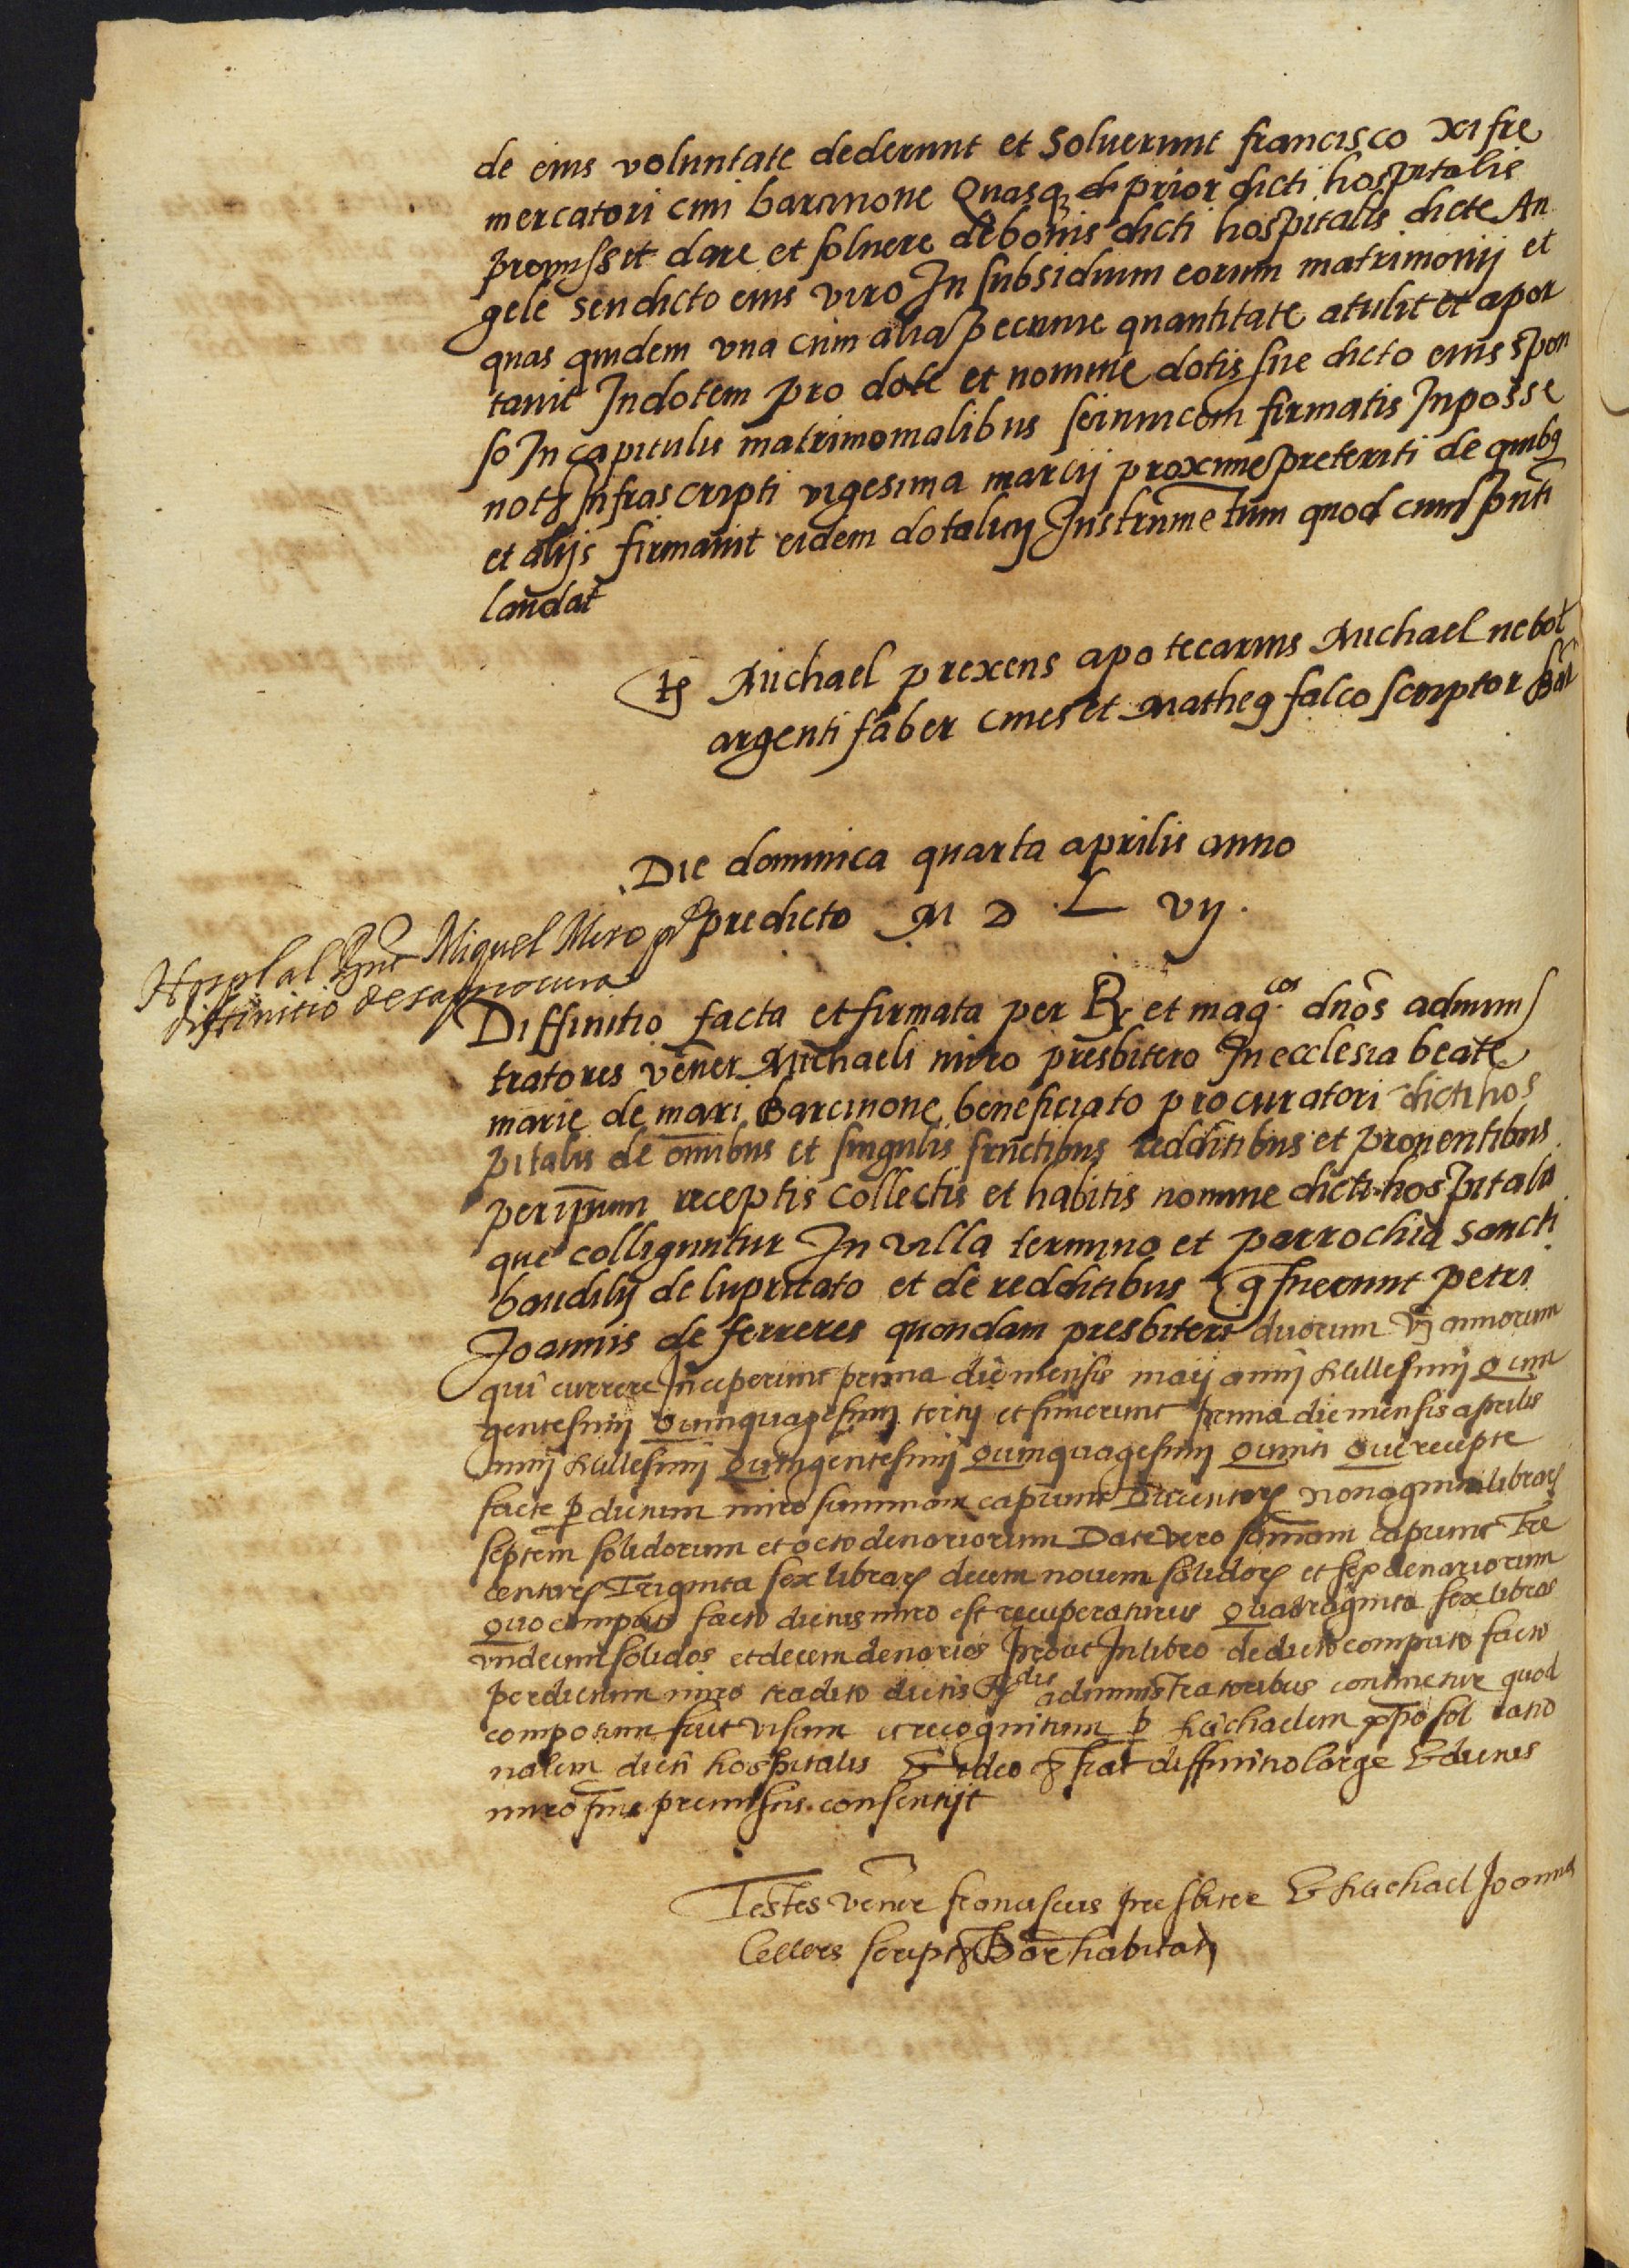 de eius voluntate dederunt et soluerunt francisco xifre
mercatori ciui barcinone Quasq; prior dicti hospitalis
promissit dare et soluere de bonis dicti hospitalis dicte An
gele seu dicto eius viro In subsidium eorum matrimonij et
quas quidem vna cum alia pecunie quantitate atulit et apor
tauit In dotem pro dote et nomine dotis sue dicto eius spon
so In capitulis matrimonialibus seinuicem firmatis In posse
not Infrascripti vigesima marcij proxime preteriti de quibꝰ
et alijs firmauit eidem dotalicij Instrumetum quod cum pnti
laudat
ts Michael prexens apotecarius Michael nebot
argenti faber ciues et Matheꝰ falco scriptor Bar
Die dominica quarta aprilis anno
predicto M D L vij.
Hospl al Rnt Miquel Miro pre
diffinitio de sa procura
Diffinitio facta et firmata per R et mag.cos dnos adminis
tratores vener Michaeli miro presbitero In ecclesia beate
marie de mari Barcinone beneficiato procuratori dicti hos
pitalis de omibus et singulis fructibus redditibus et prouentibus
per ipsum receptis collectis et habitis nomine dicti hospitalis
que colliguntur In villa termino et parrochia sancti
baudilij de lupricato et de redditibus q fuerunt petri
Joannis de ferreres quondam presbiteri duorum annorum
qui currere Inceperunt prima die mensis maij anni Millesimi Quin
gentesimi Quinquagesimi tertij et finierunt prima die mensis aprilis
anni Millesimi Quingentesimi Quinquagesimi Quinti Que recepte
facte p dictum miro summam capiunt Ducentarꝝ nonaginta librarꝝ
septem solidorum et octo denariorum Date vero sumam capiunt Tre
centarꝝ Triginta sex librarꝝ decem nouem solidorꝝ et sex denariorum
Quo computo facto dictus miro est recuperaturus Quadraginta sex libras
vndecim solidos et decem denarios prout In libro de dicto computo facto
per dictum miro tradito dictis R dis administratoribus continetur quod
compotum fuit visum et recognitum p Michaelem ratio
nalem dicti hospitalis Et ideo fiat diffinitio large Et dictus
miro premissis consentijt
Testes vener franciscus presbiter Et Michael Joannes
Cellers script Bar habitatꝫ